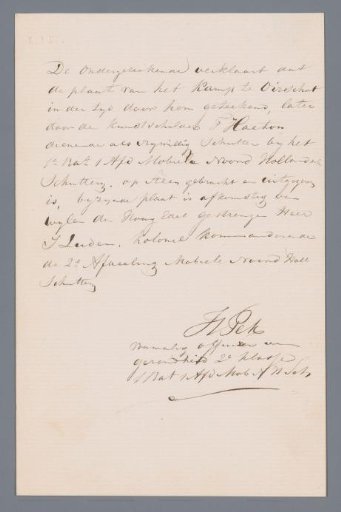 De Ondergeteekende verklaart dat
de plaat van het Kamp te Oirschot
in der tyd door hem geteekend, later
door de Kunstschilder F Haehon
dienende als vrywillig Schutter by het
1e Bat 1 Afd Mobiele Noord Hollandsche
Schuttery, op Steen gebracht en uitgegeven
is, bygaande plaat is afkomstig van
wylen den Hoog Edel gestrenge Heer
J Luden, Kolonel Kommandeerende
de 2e Afdeeling Mobiele Noord Holl
Schuttery
H Pek
voormalig officier van
gezondheid 2e klasse
1 Bat 1 Afd Mob N H Sch.